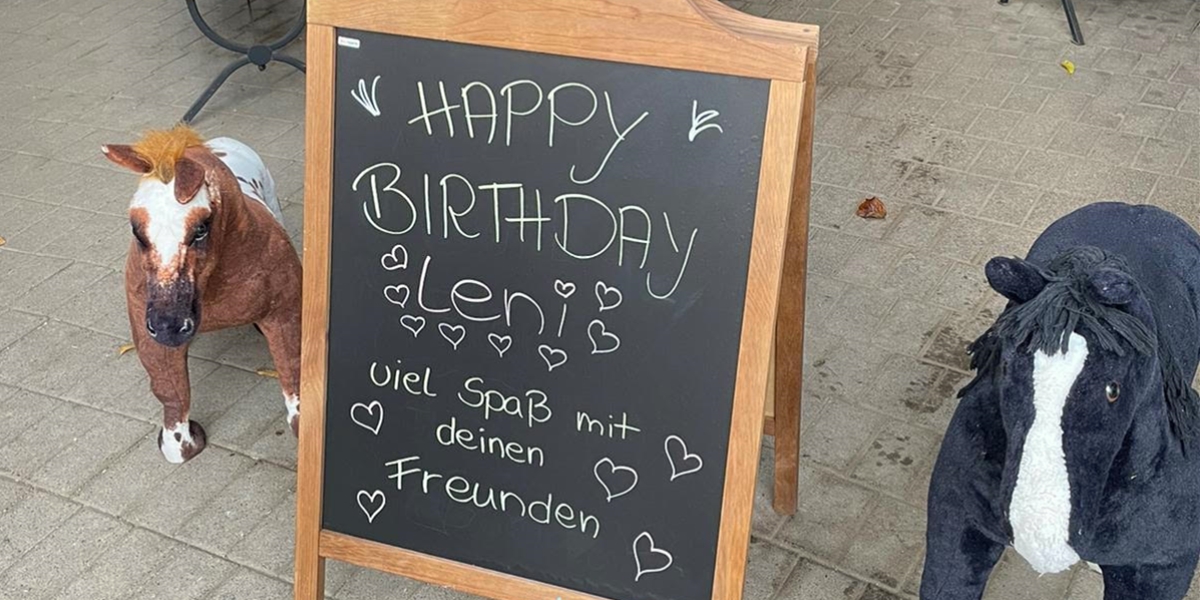 HAPPY
BIRTHDAY
Leni
viel Spaß mit
deinen
Freunden